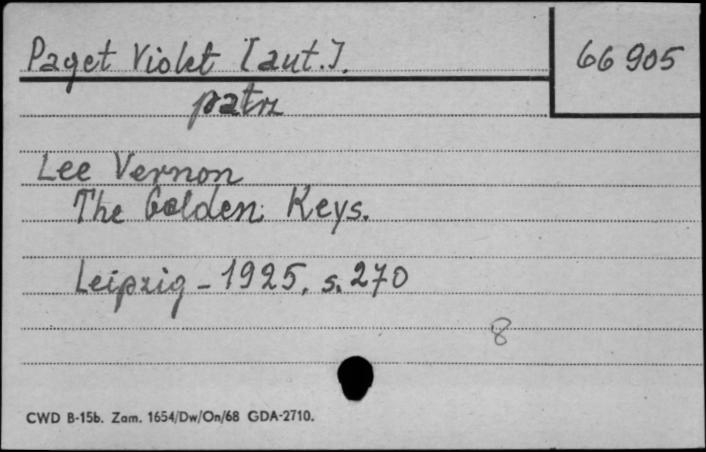 Paget Violet [aut.].
66 905
patrz
Lee Vernon
The Golden Keys.
Leipzig - 1925, s. 270
8
CWD B-15b. Zam. 1654/Dw/On/68 GDA-2710.